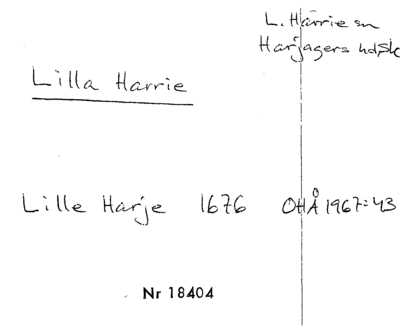 L. Harrie sn
Harjagers hd, Sk
Lilla Harrie
Lille Harje 1676 OHÅ 1967:43
Nr 18404